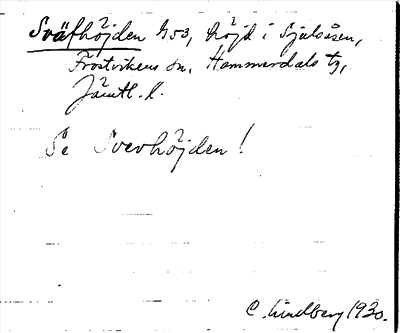 Sväfhöjden 853, höjd i Sjulsåsen,
Frostvikens sn, Hammerdals tg,
Jämtl. l.
Se Svevhöjden!
C. Lindberg 1930.